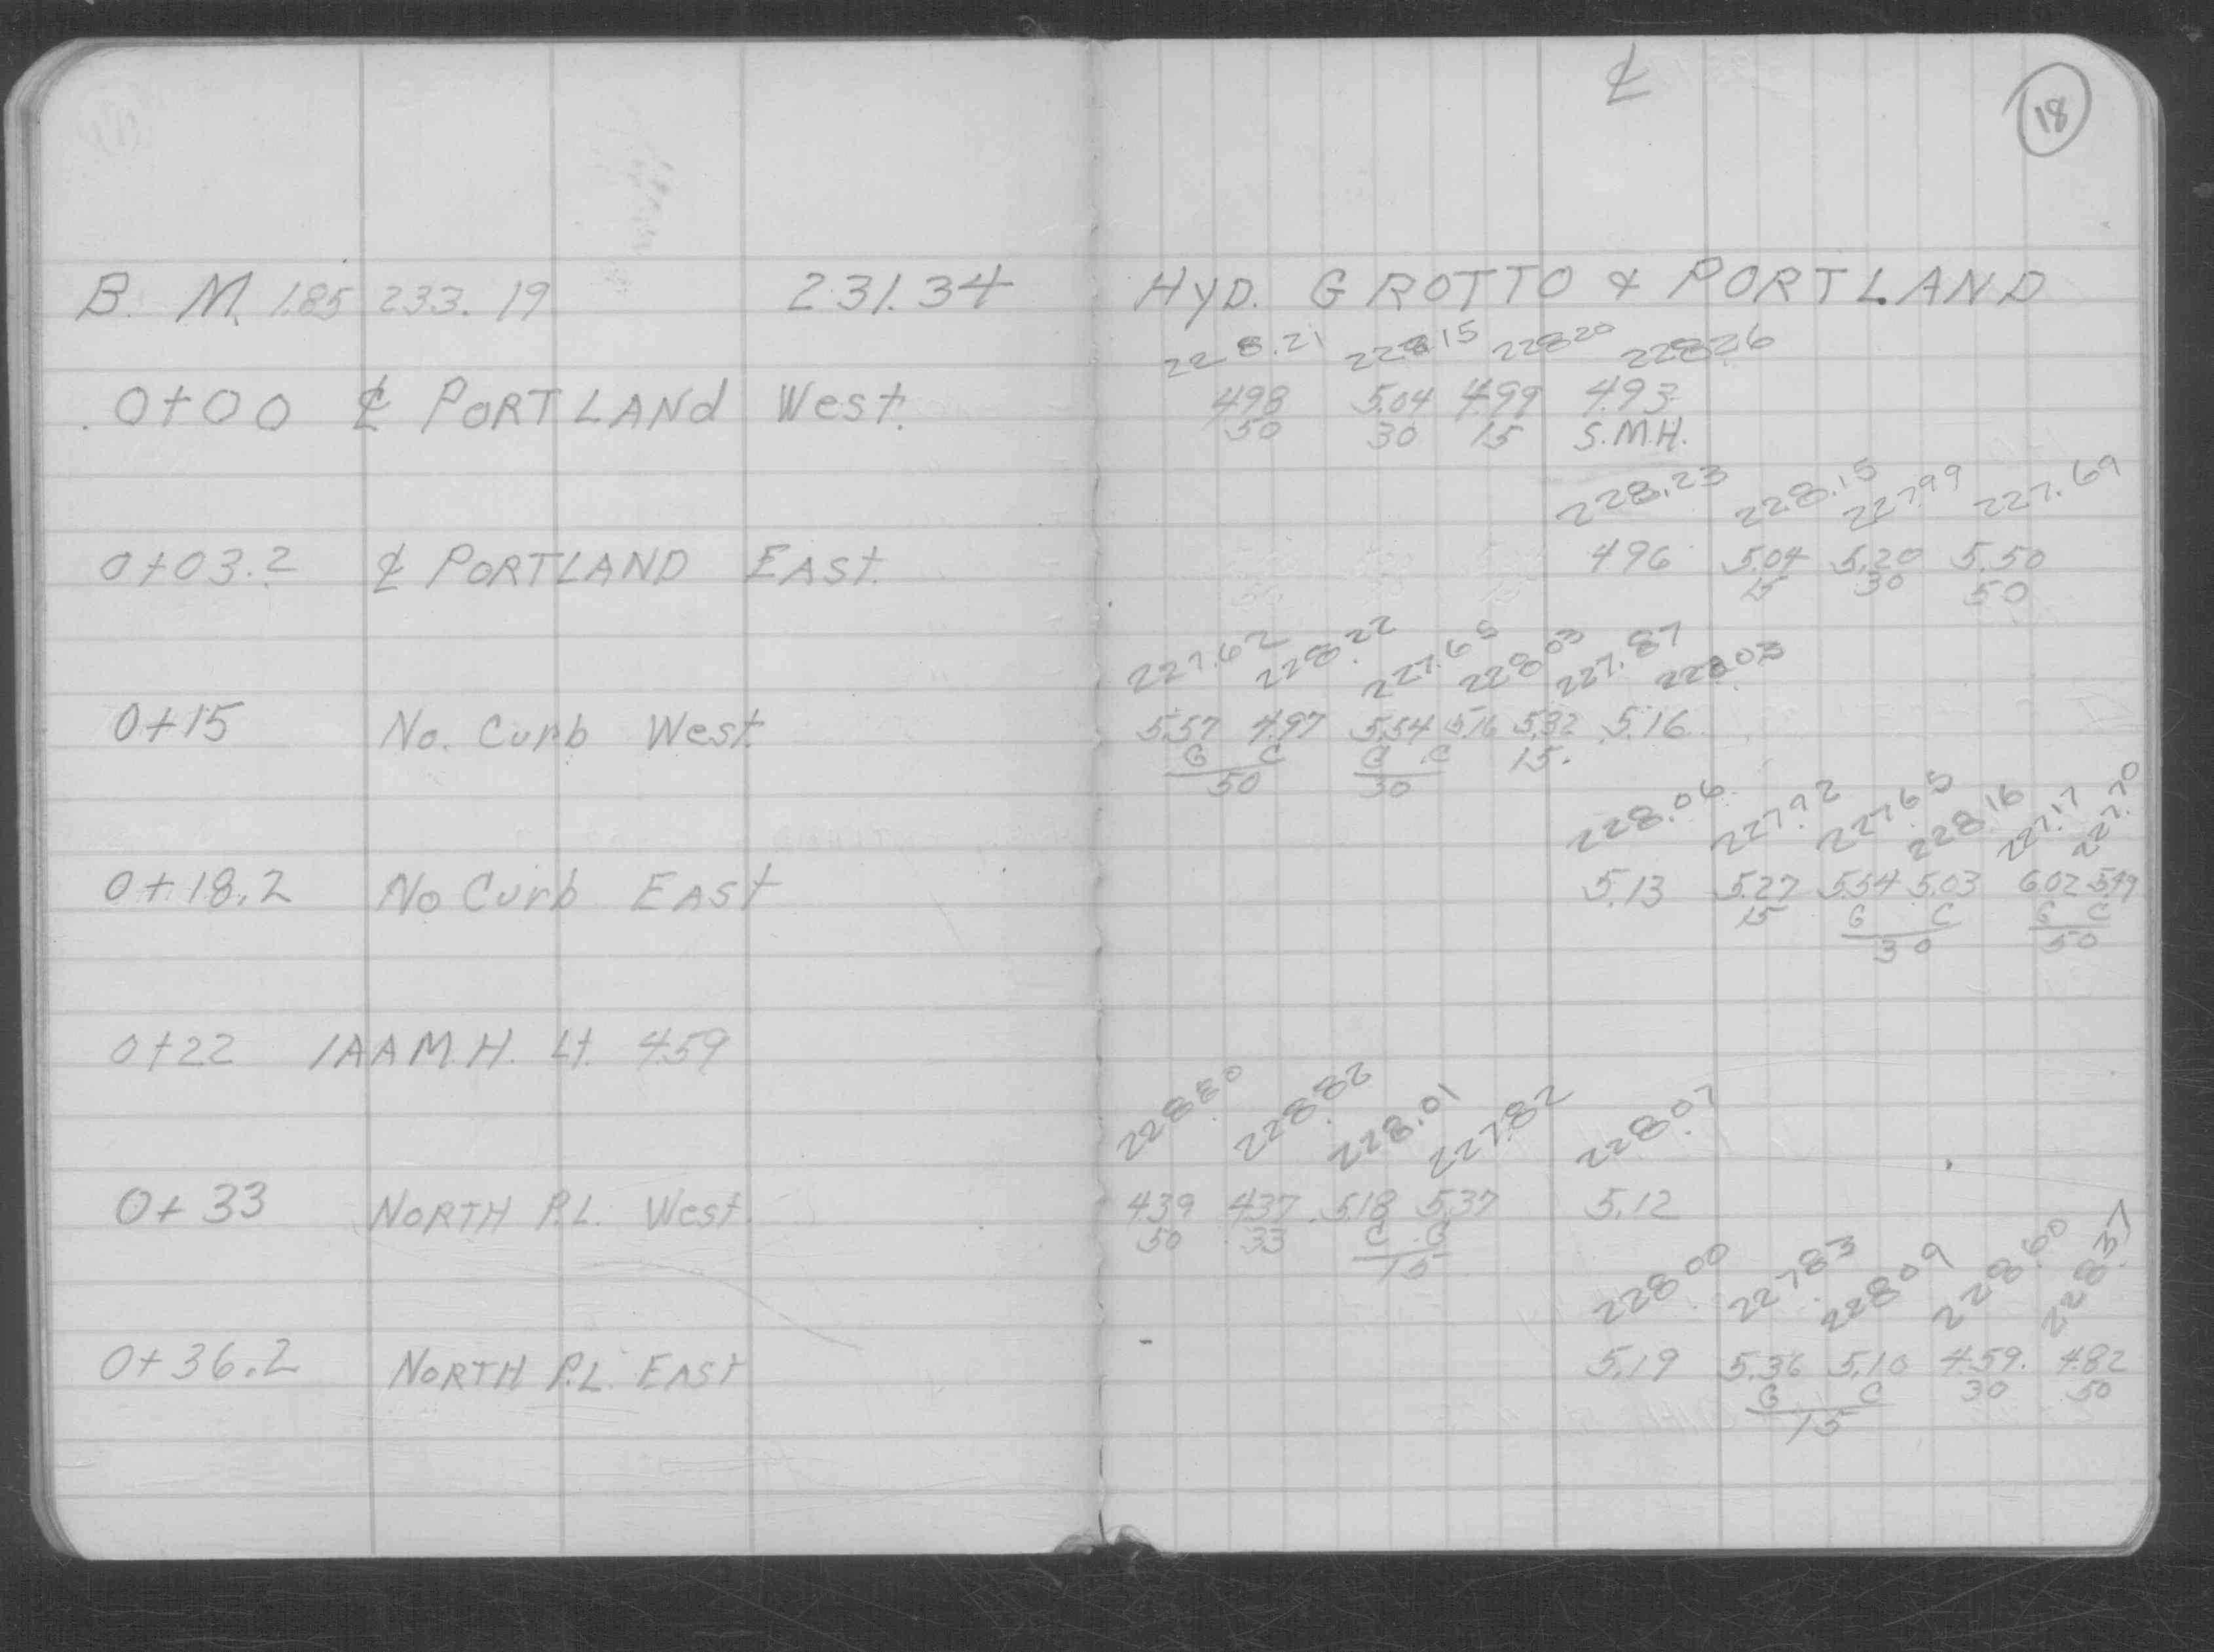 ℄
18
B. M. 1.85 233.19 231.34 HYD. GROTTO & PORTLAND
228.21 228.15 228.20 228.26
0+00 ℄ PORTLANd West. 4.98 5.04 4.99 4.93
50 30 15 S.M.H.
228.23 228.15 227.99 227.69
0+03.2 ℄ PORTLAND EAST. 4.96 5.04 5.20 5.50
15 30 50
227.62 228.22 227.65 228.03 227.87 228.03
0+15 No. Curb West 5.57 4.97 5.54 5.16 5.32 5.16
G C G C 15.
50 30
228.06 227.92 227.65 228.16 227.17 227.70
0+18.2 No Curb EAST 5.13 5.27 5.54 5.03 6.02 5.49
15 G C G C
30 50
0+22 1AA M.H. Lt. 4.59
228.80 228.82 228.01 227.82 228.07
0+33 NORTH P.L. West. 4.39 4.37 5.18 5.37 5.12
50 33 C G
15
228.00 227.83 228.09 228.60 228.37
0+36.2 NORTH P.L. EAST 5.19 5.36 5.10 4.59 4.82
G C 30 50
15